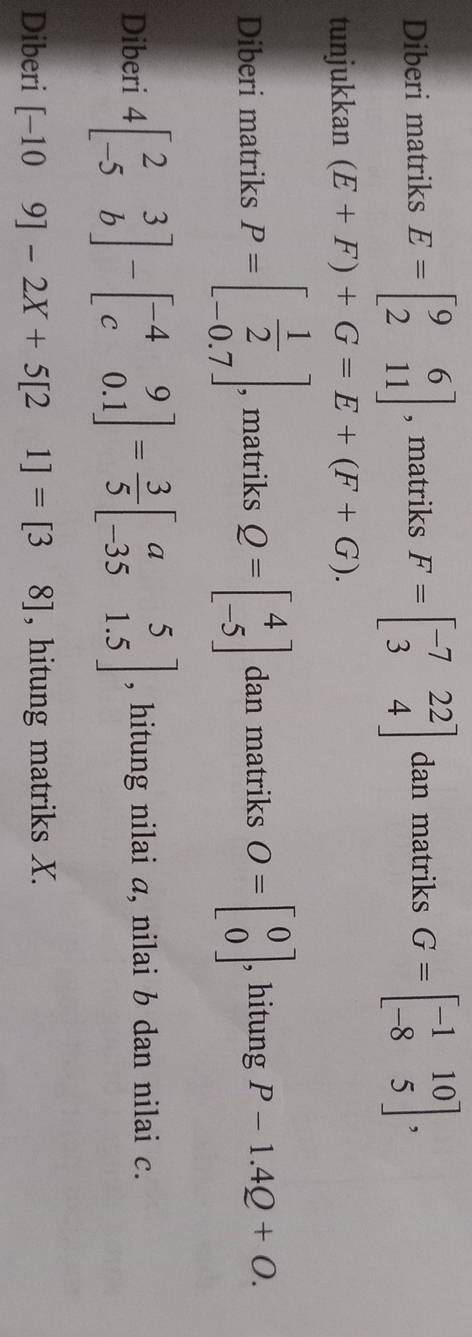 Diberi matriks $E = \begin{bmatrix} 9 & 6 \\ 2 & 11 \end{bmatrix}$, matriks $F = \begin{bmatrix} -7 & 22 \\ 3 & 4 \end{bmatrix}$ dan matriks $G = \begin{bmatrix} -1 & 10 \\ -8 & 5 \end{bmatrix}$,
tunjukkan $(E + F) + G = E + (F + G)$.
Diberi matriks $P = \begin{bmatrix} \frac{1}{2} \\ -0.7 \end{bmatrix}$, matriks $Q = \begin{bmatrix} 4 \\ -5 \end{bmatrix}$ dan matriks $O = \begin{bmatrix} 0 \\ 0 \end{bmatrix}$, hitung $P - 1.4Q + O$.
Diberi $4\begin{bmatrix} 2 & 3 \\ -5 & b \end{bmatrix} - \begin{bmatrix} -4 & 9 \\ c & 0.1 \end{bmatrix} = \frac{3}{5}\begin{bmatrix} a & 5 \\ -35 & 1.5 \end{bmatrix}$, hitung nilai $a$, nilai $b$ dan nilai $c$.
Diberi $[-10 \quad 9] - 2X + 5[2 \quad 1] = [3 \quad 8]$, hitung matriks $X$.